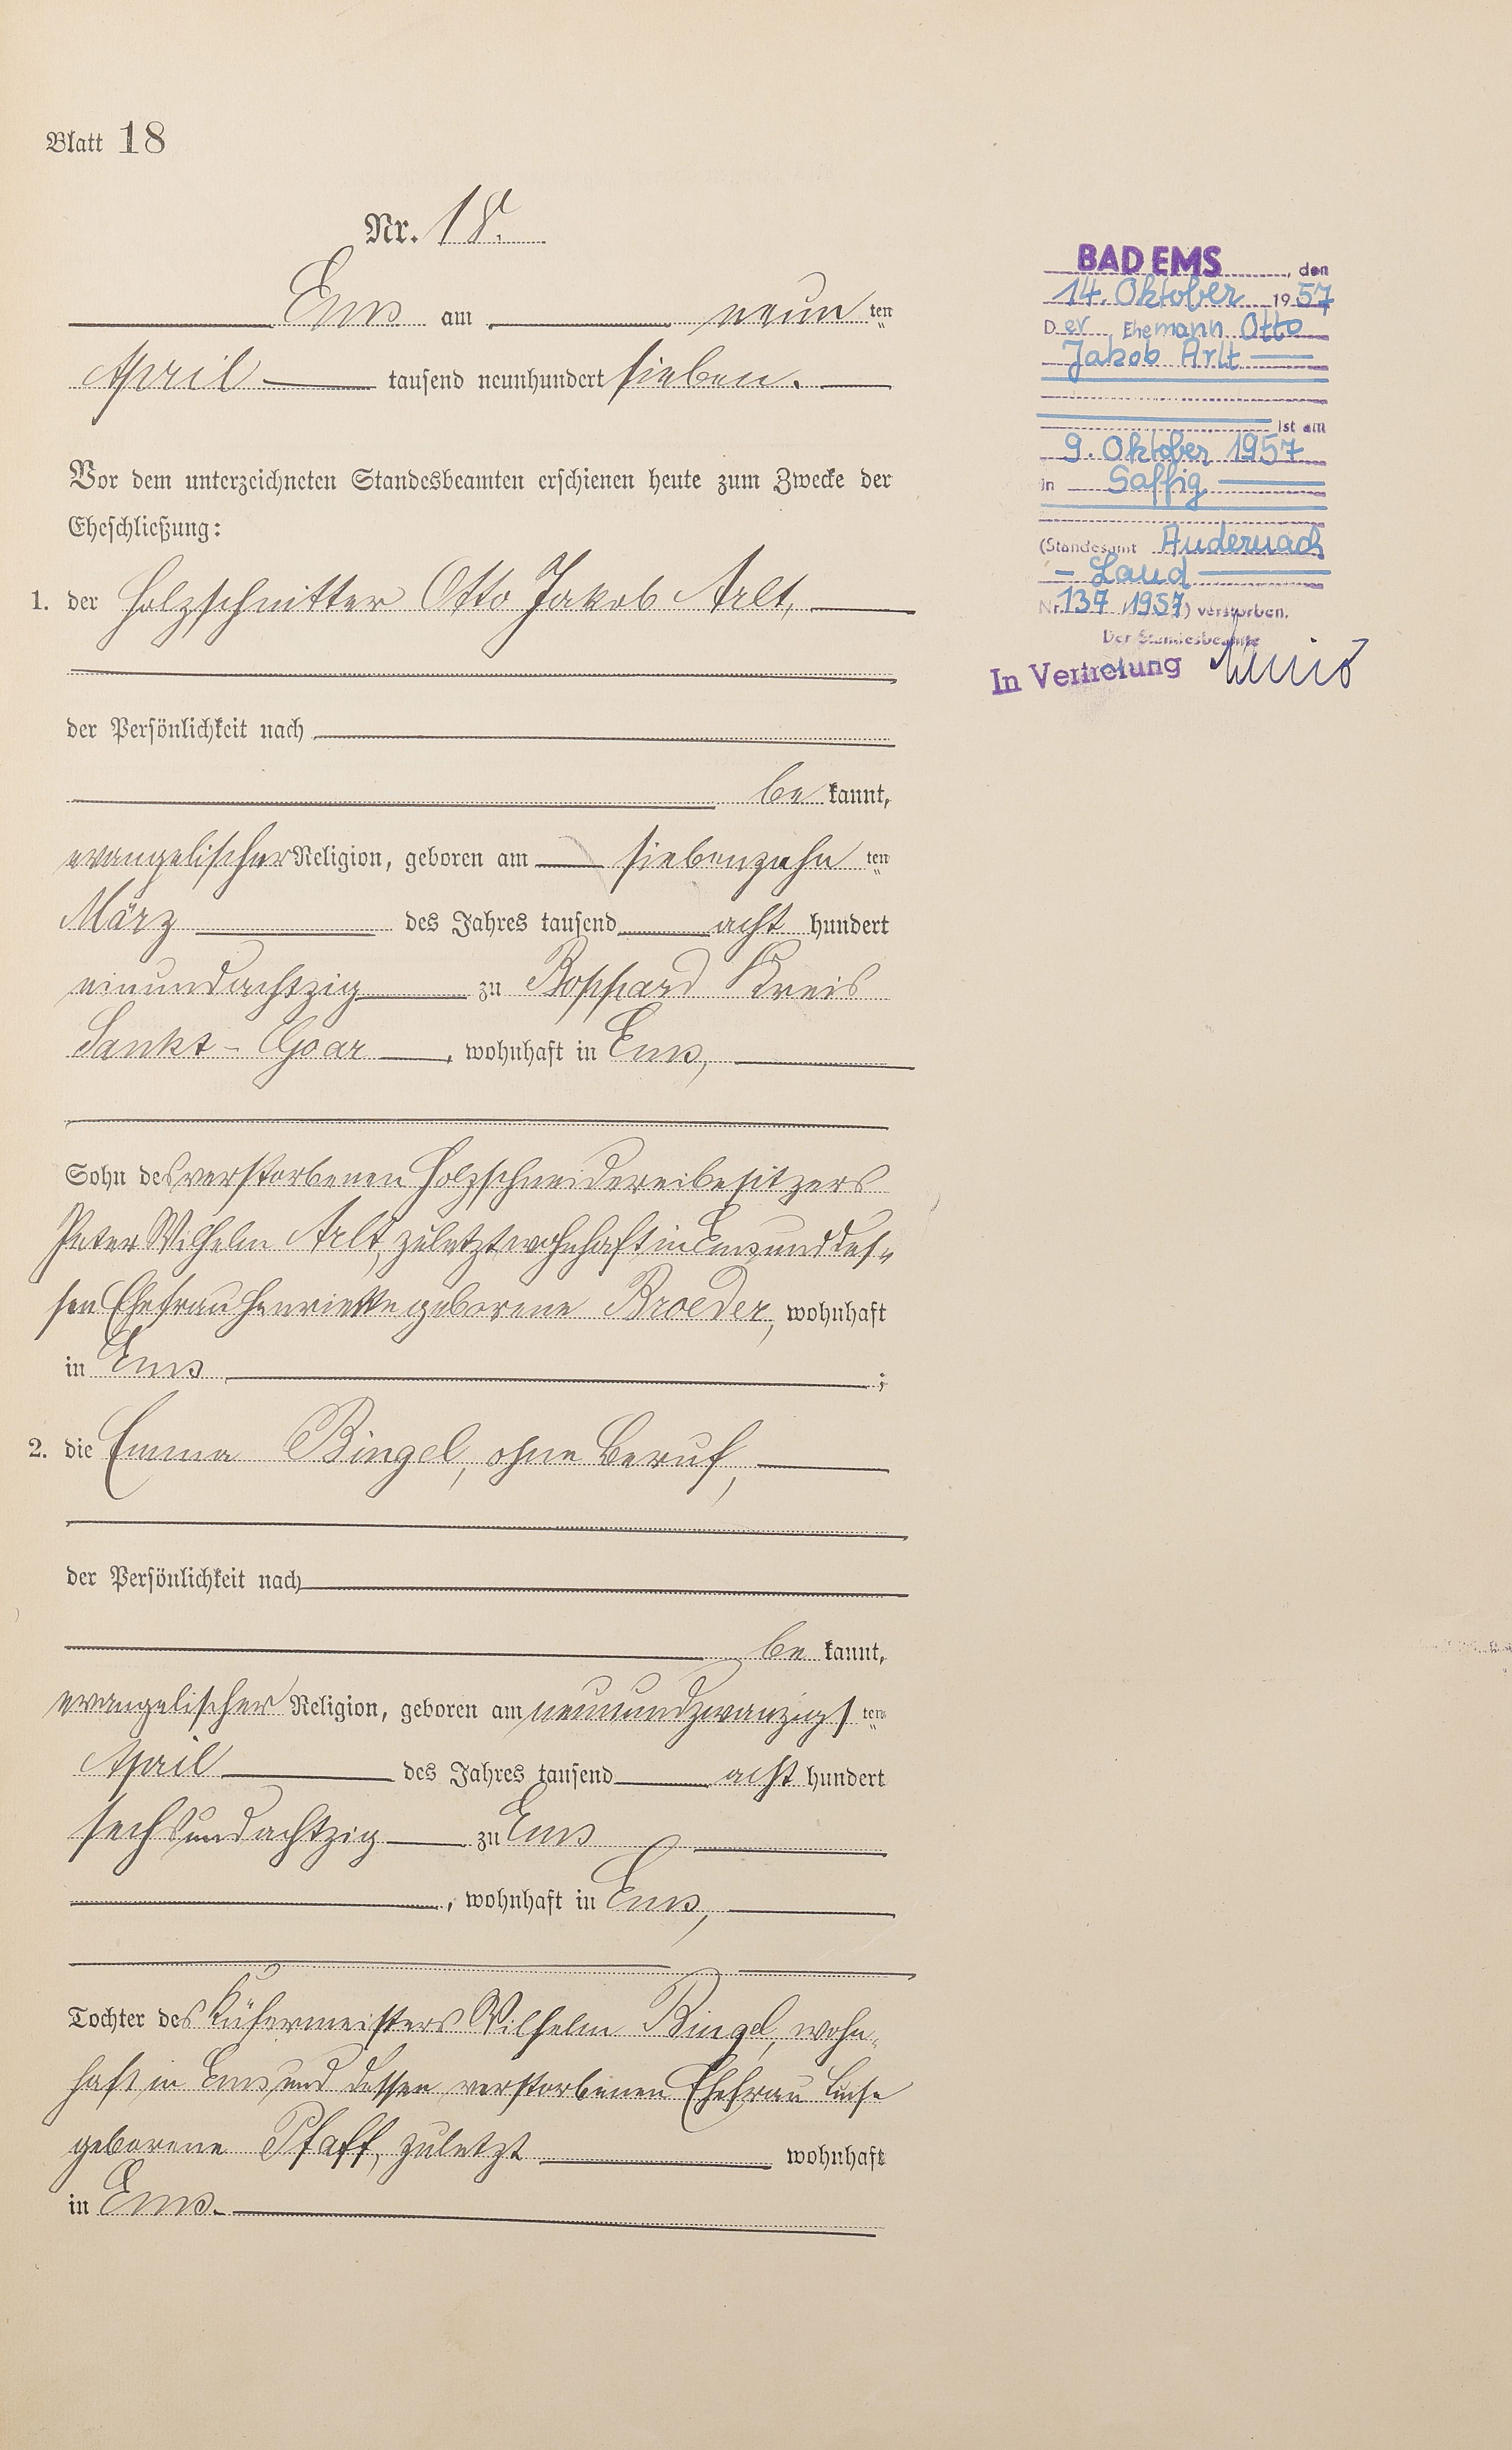 Blatt 18
Nr. 18.
Ems am neun ten
April tausend neunhundert sieben.
Vor dem unterzeichneten Standesbeamten erschienen heute zum Zwecke der
Eheschließung:
1. der Holzschnitter Otto Jakob Arlt,
der Persönlichkeit nach
be kannt,
evangelischer Religion, geboren am siebenzehn ten
März des Jahres tausend acht hundert
einundachtzig zu Boppard Kreis
Sankt-Goar, wohnhaft in Ems,
Sohn des verstorbenen Holzschneidereibesitzers
Peter Wilhelm Arlt, zuletzt wohnhaft in Ems und des-
sen Ehefrau Henriette geborene Broeder, wohnhaft
in Ems ;
2. die Emma Bingel, ohne Beruf,
der Persönlichkeit nach
be kannt,
evangelischer Religion, geboren am neunundzwanzigs ten
April des Jahres tausend acht hundert
sechsundachtzig zu Ems
, wohnhaft in Ems,
Tochter des Küfermeisters Wilhelm Bingel, wohn-
haft in Ems und dessen verstorbenen Ehefrau Luise
geborene Pfaff, zuletzt wohnhaft
in Ems.
BAD EMS, den
14. Oktober 1957
Der Ehemann Otto
Jakob Arlt
ist am
9. Oktober 1957
in Saffig
(Standesamt Andernach
- Land
Nr. 137/1957) verstorben.
Der Standesbeamte
In Vertretung